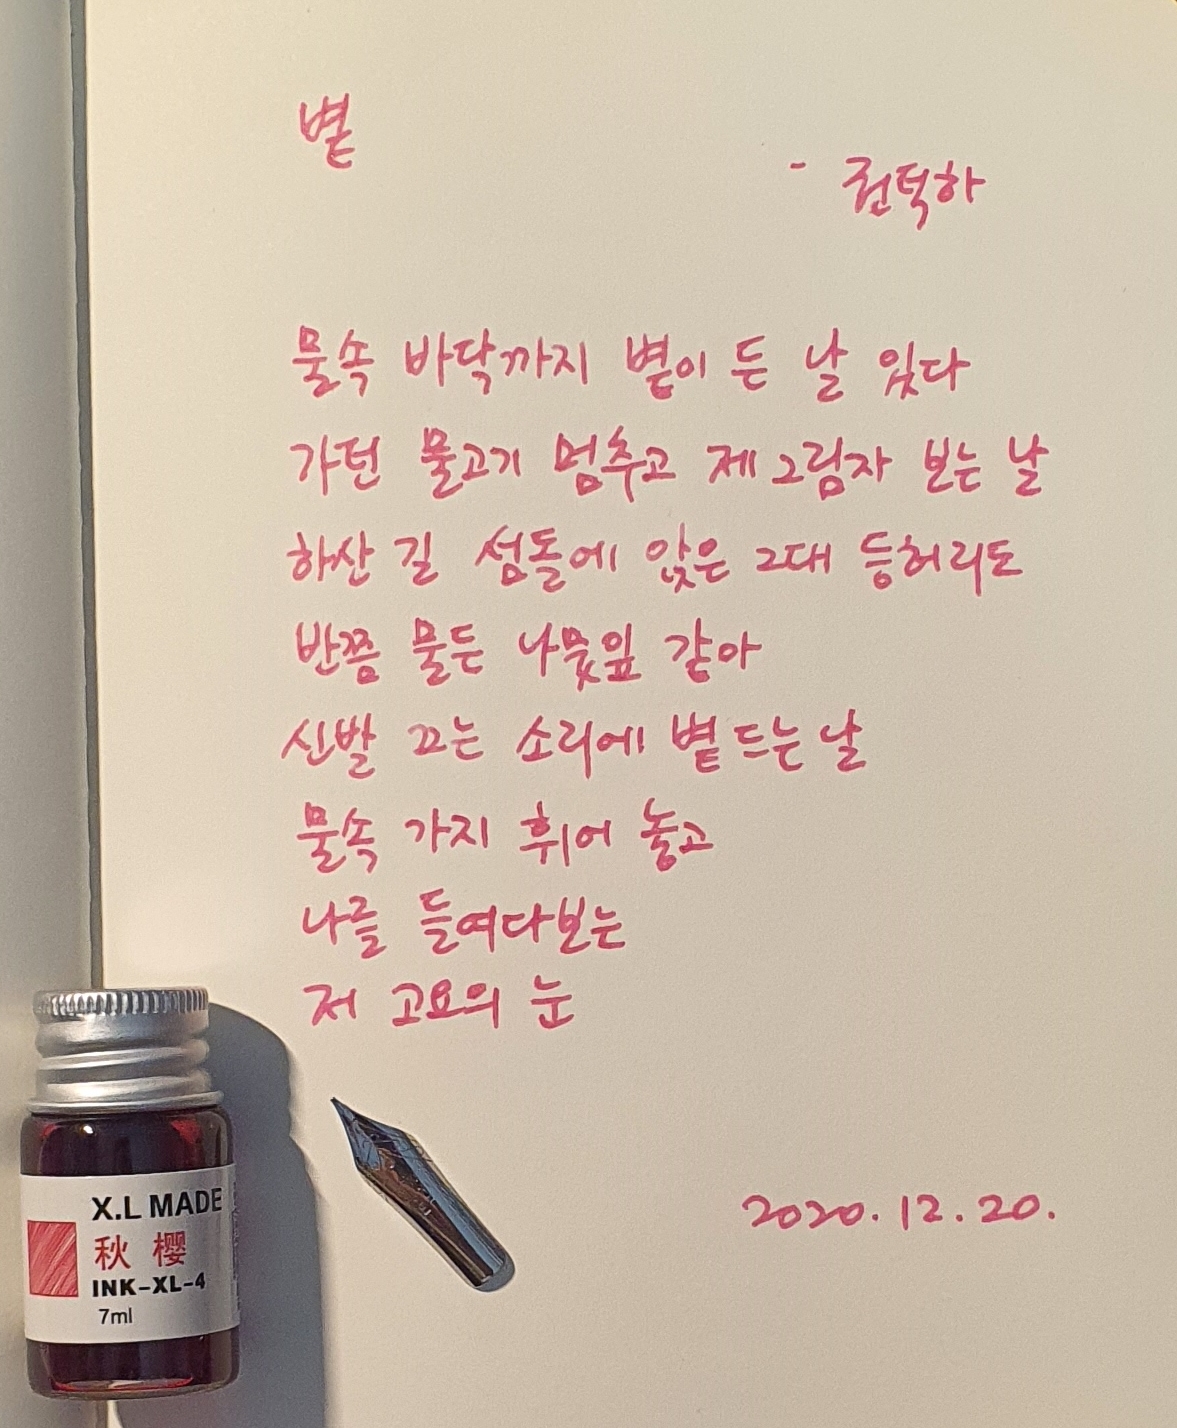 볕
- 권덕하
물속 바닥까지 볕이 든 날 있다
가던 물고기 멈추고 제 그림자 보는 날
하산 길 섬돌에 앉은 그대 등허리도
반쯤 물든 나뭇잎 같아
신발 끄는 소리에 볕 드는 날
물속 가지 휘어 놓고
나를 들여다보는
저 고요의 눈
2020. 12. 20.
X.L MADE
秋 樱
INK-XL-4
7ml